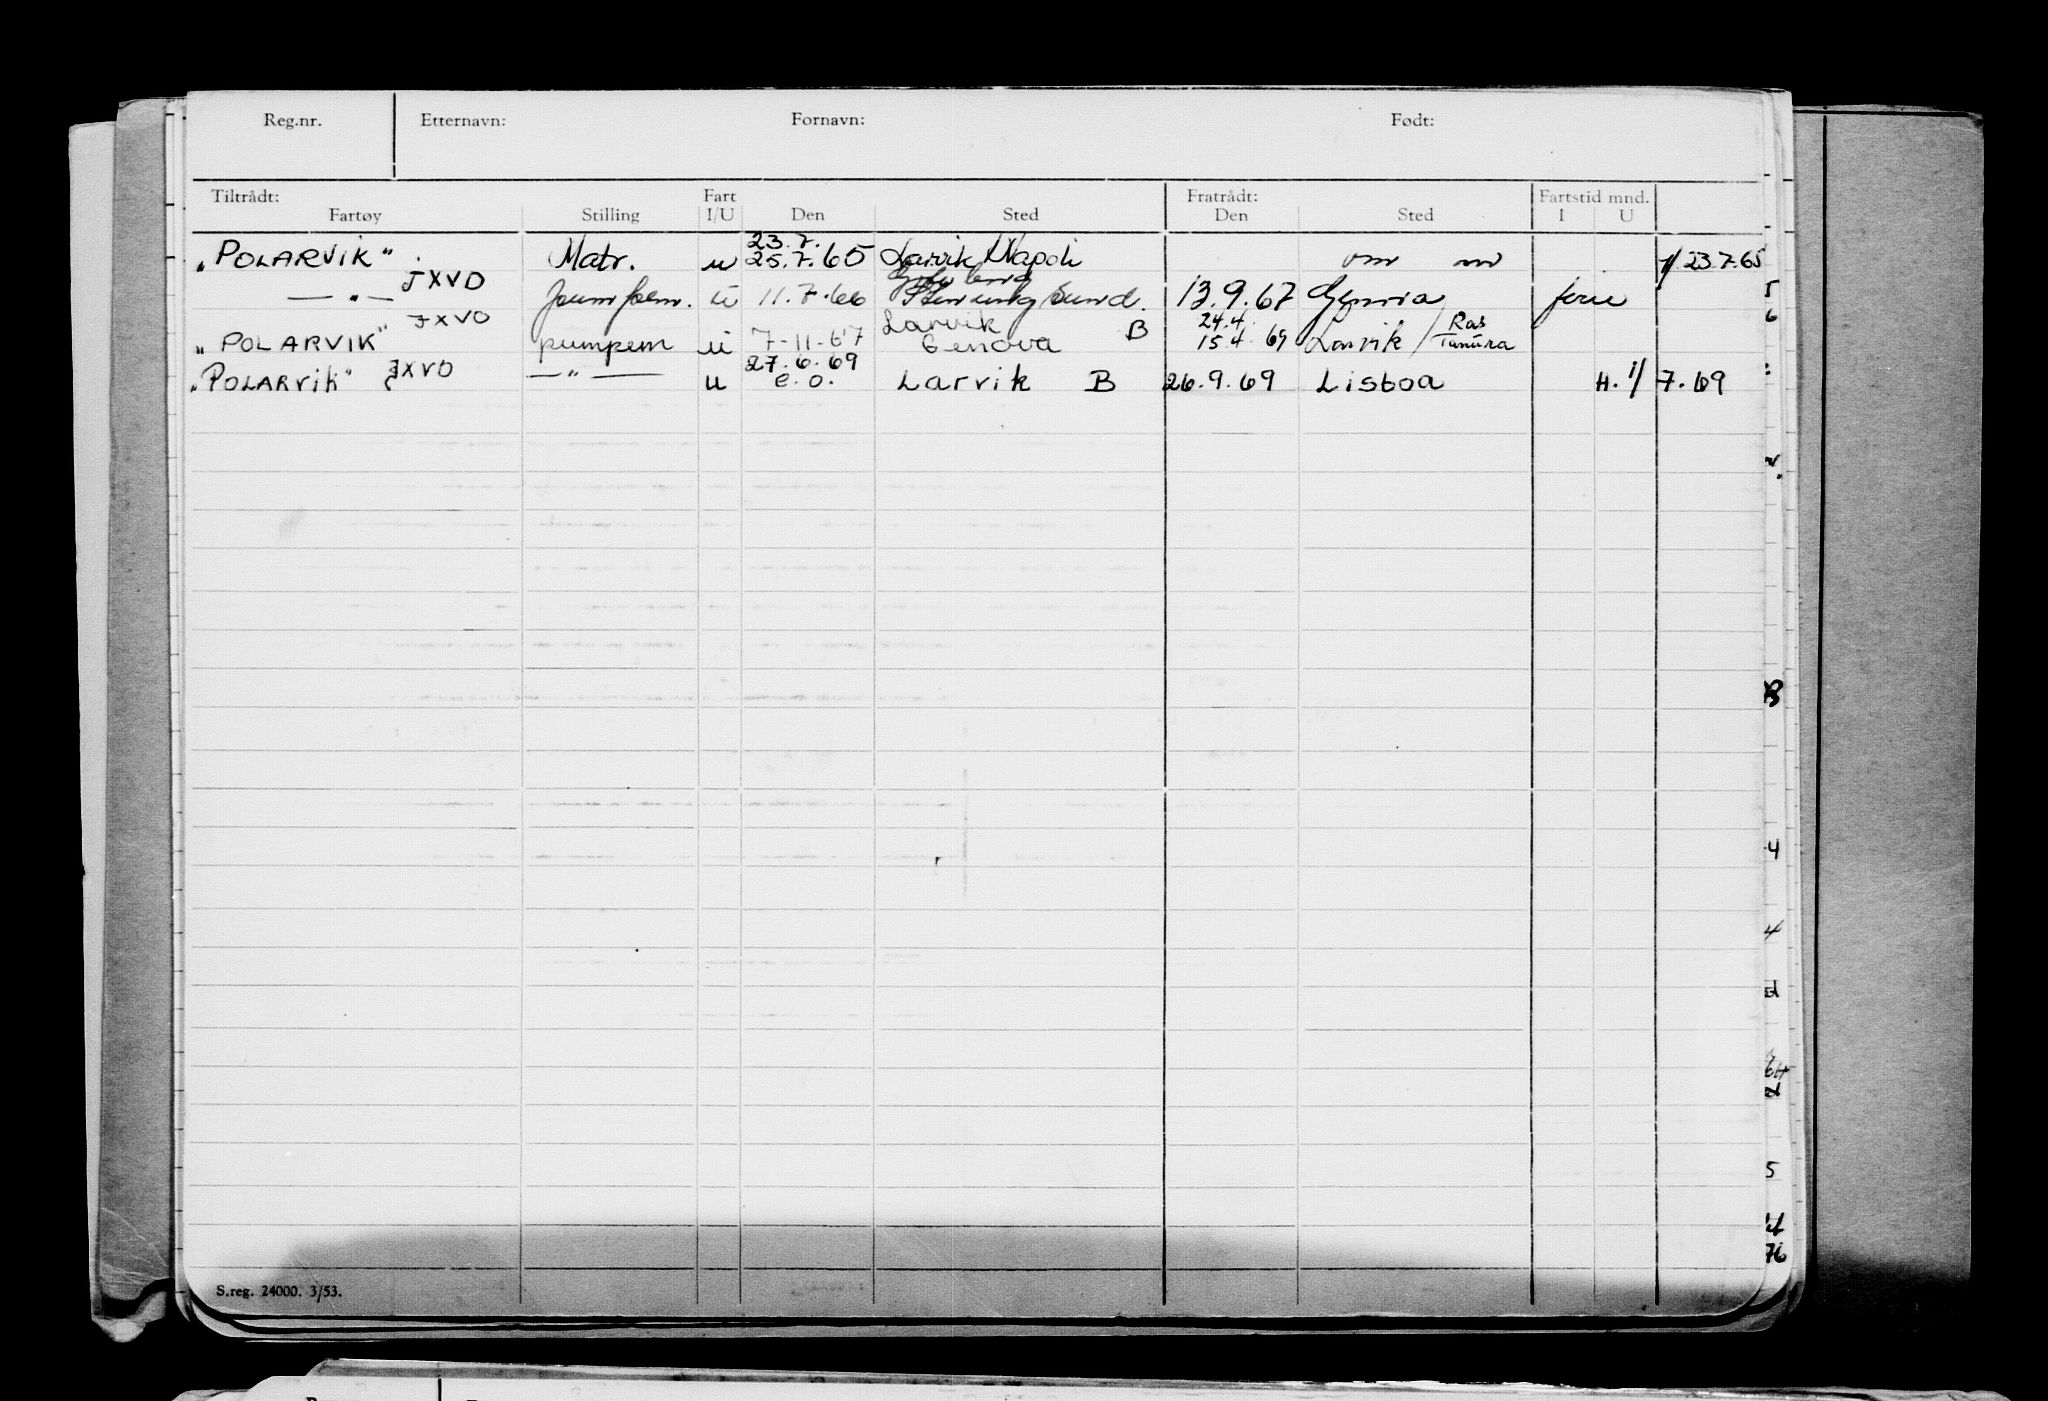 Reg.nr. Etternavn: Fornavn: Født:
Tiltrådt: Fart Fratrådt: Fartstid mnd.
Fartøy Stilling I/U Den Sted Den Sted I U
23.7.
"POLARVIK" Matr. u 25.7.65 Larvik Napoli om 1/ 23.7.65
JXVO
— " — u 11.7.66 Stenungsund. 13.9.67 Genova ferie
JXVO Larvik 24.4. Ras
"POLARVIK" pumpem u 7-11-67 Genova B 15.4.69 Larvik / Tanura
27.6.69
"POLARVIK" JXVO — " — u e.o. Larvik B 26.9.69 Lisboa H. 1/ 7.69
S.reg. 24000. 3/53.